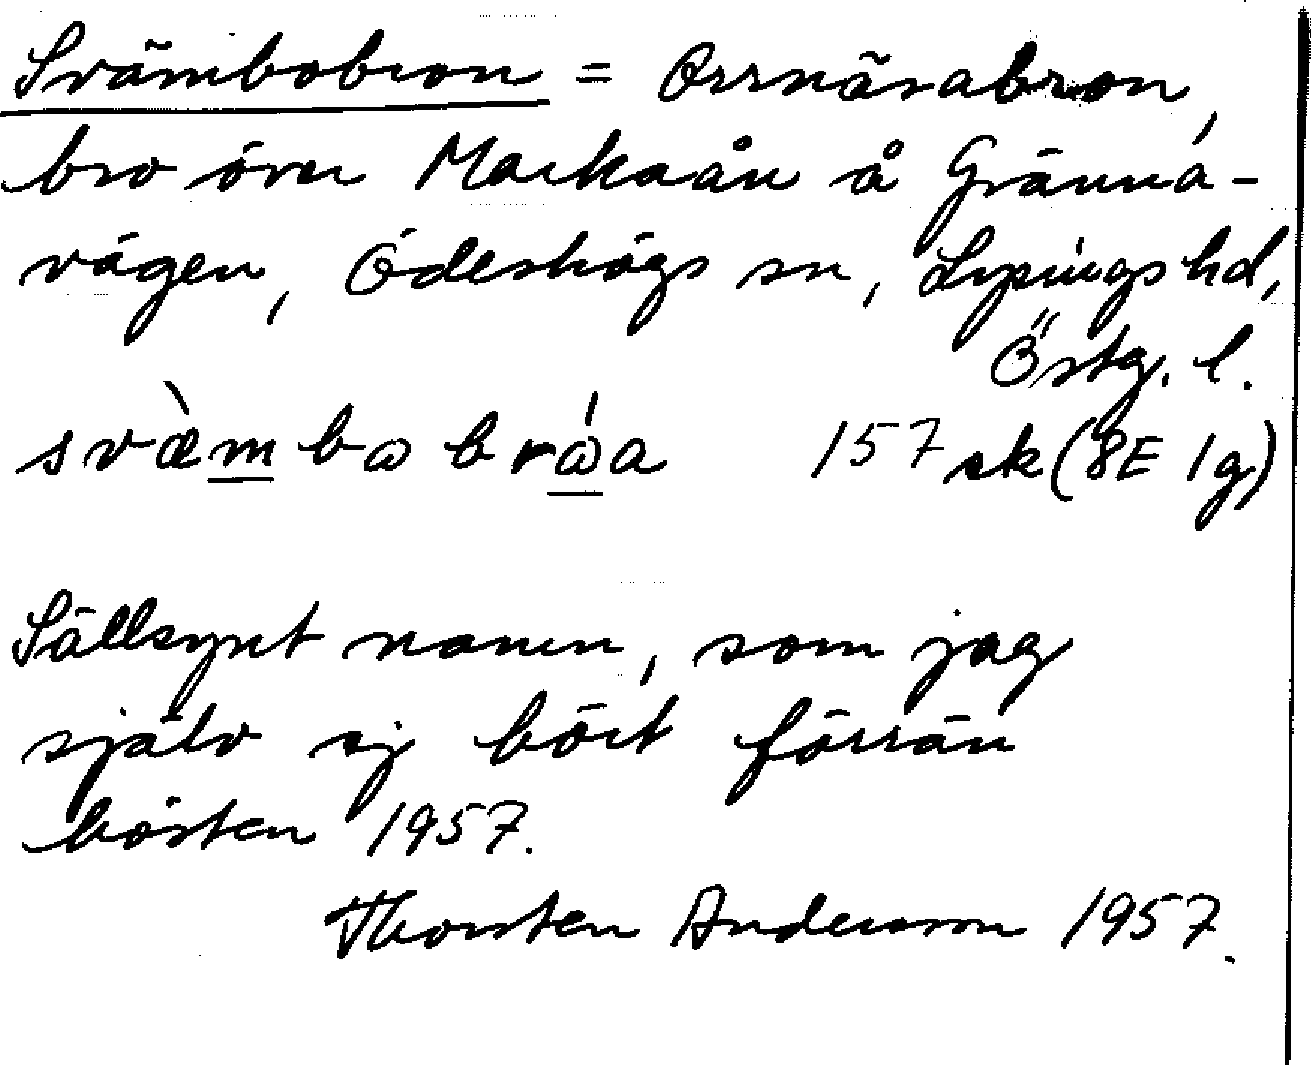 Svämbobron = Orrnäsabron,
bro över Markaån å Gränna-
vägen, Ödeshögs sn, Lysings hd,
Östg. l.
svæ̀mbωbrώa 157 sk (8E 1g)
Sällsynt namn, som jag
själv ej hört förrän
hösten 1957.
Thorsten Andersson 1957.